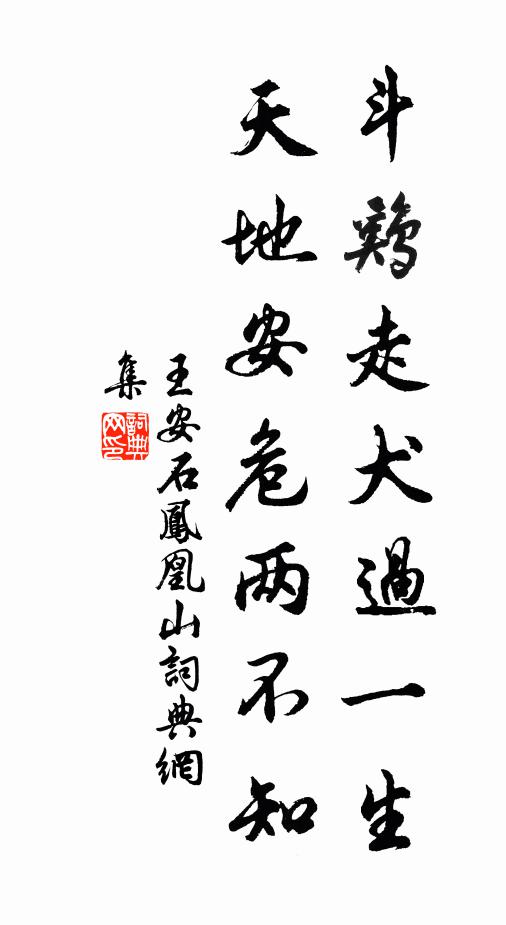 斗鷄走犬過一生
天地安危两不知
王安石鳳凰山詞典網
集
詞典
网印